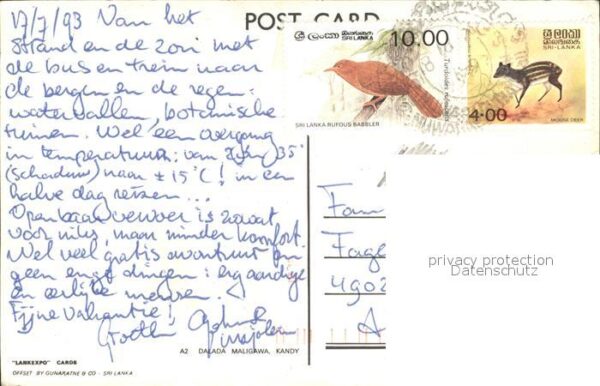 17/7/93 Van het
strand en de zon met
de bus en trein naar
de bergen en de regen-
watervallen, botanische
tuinen. Wel een overgang
in temperatuur: van 35°
(schaduw) naar ± 15°C! in een
halve dag reizen...
Openbaar vervoer is zowat
voor niks, maar minder komfort.
Wel veel gratis avontuur en
geen enge dingen: erg aardige
en eerlijke mensen.
Fijne vakantie!
Groeten
POST CARD
ශ්‍රී ලංකා இலங்கை
SRI LANKA
10.00
SRI LANKA RUFOUS BABBLER
ශ්‍රී ලංකා
இலங்கை
SRI-LANKA
4.00
MOUSE DEER
Fam
4902
privacy protection
Datenschutz
A2 DALADA MALIGAWA, KANDY
"LANKEXPO" CARDS
OFFSET BY GUNARATNE & CO - SRI LANKA